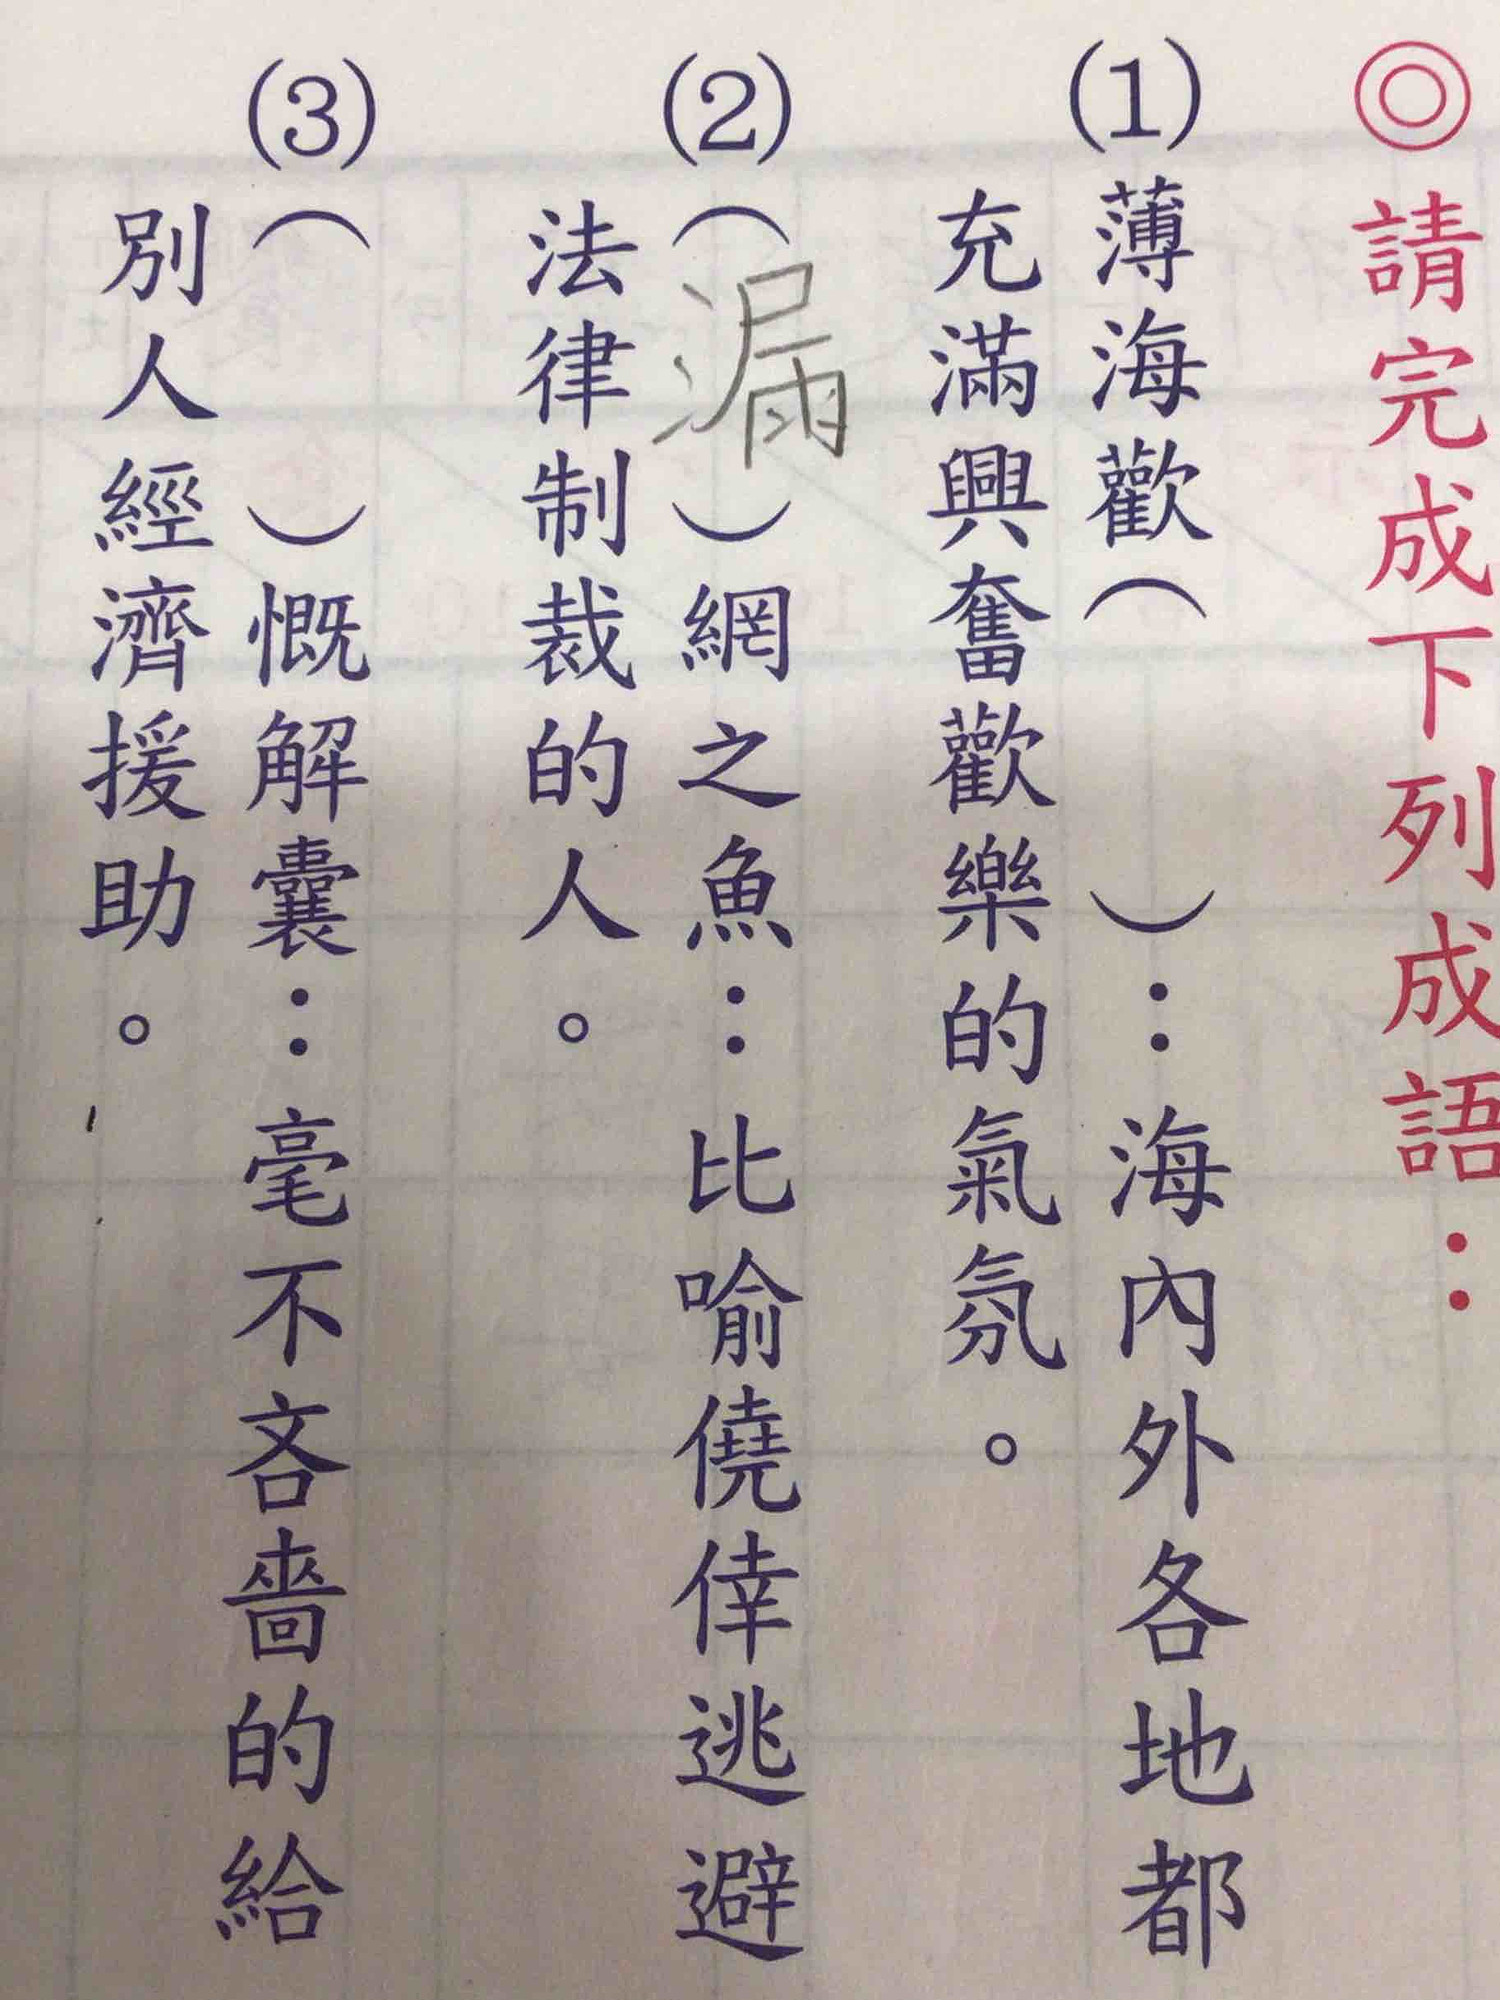 ◎請完成下列成語：
(1)薄海歡（　　）：海內外各地都
充滿興奮歡樂的氣氛。
(2)（漏）網之魚：比喻僥倖逃避
法律制裁的人。
(3)（　　）慨解囊：毫不吝嗇的給
別人經濟援助。